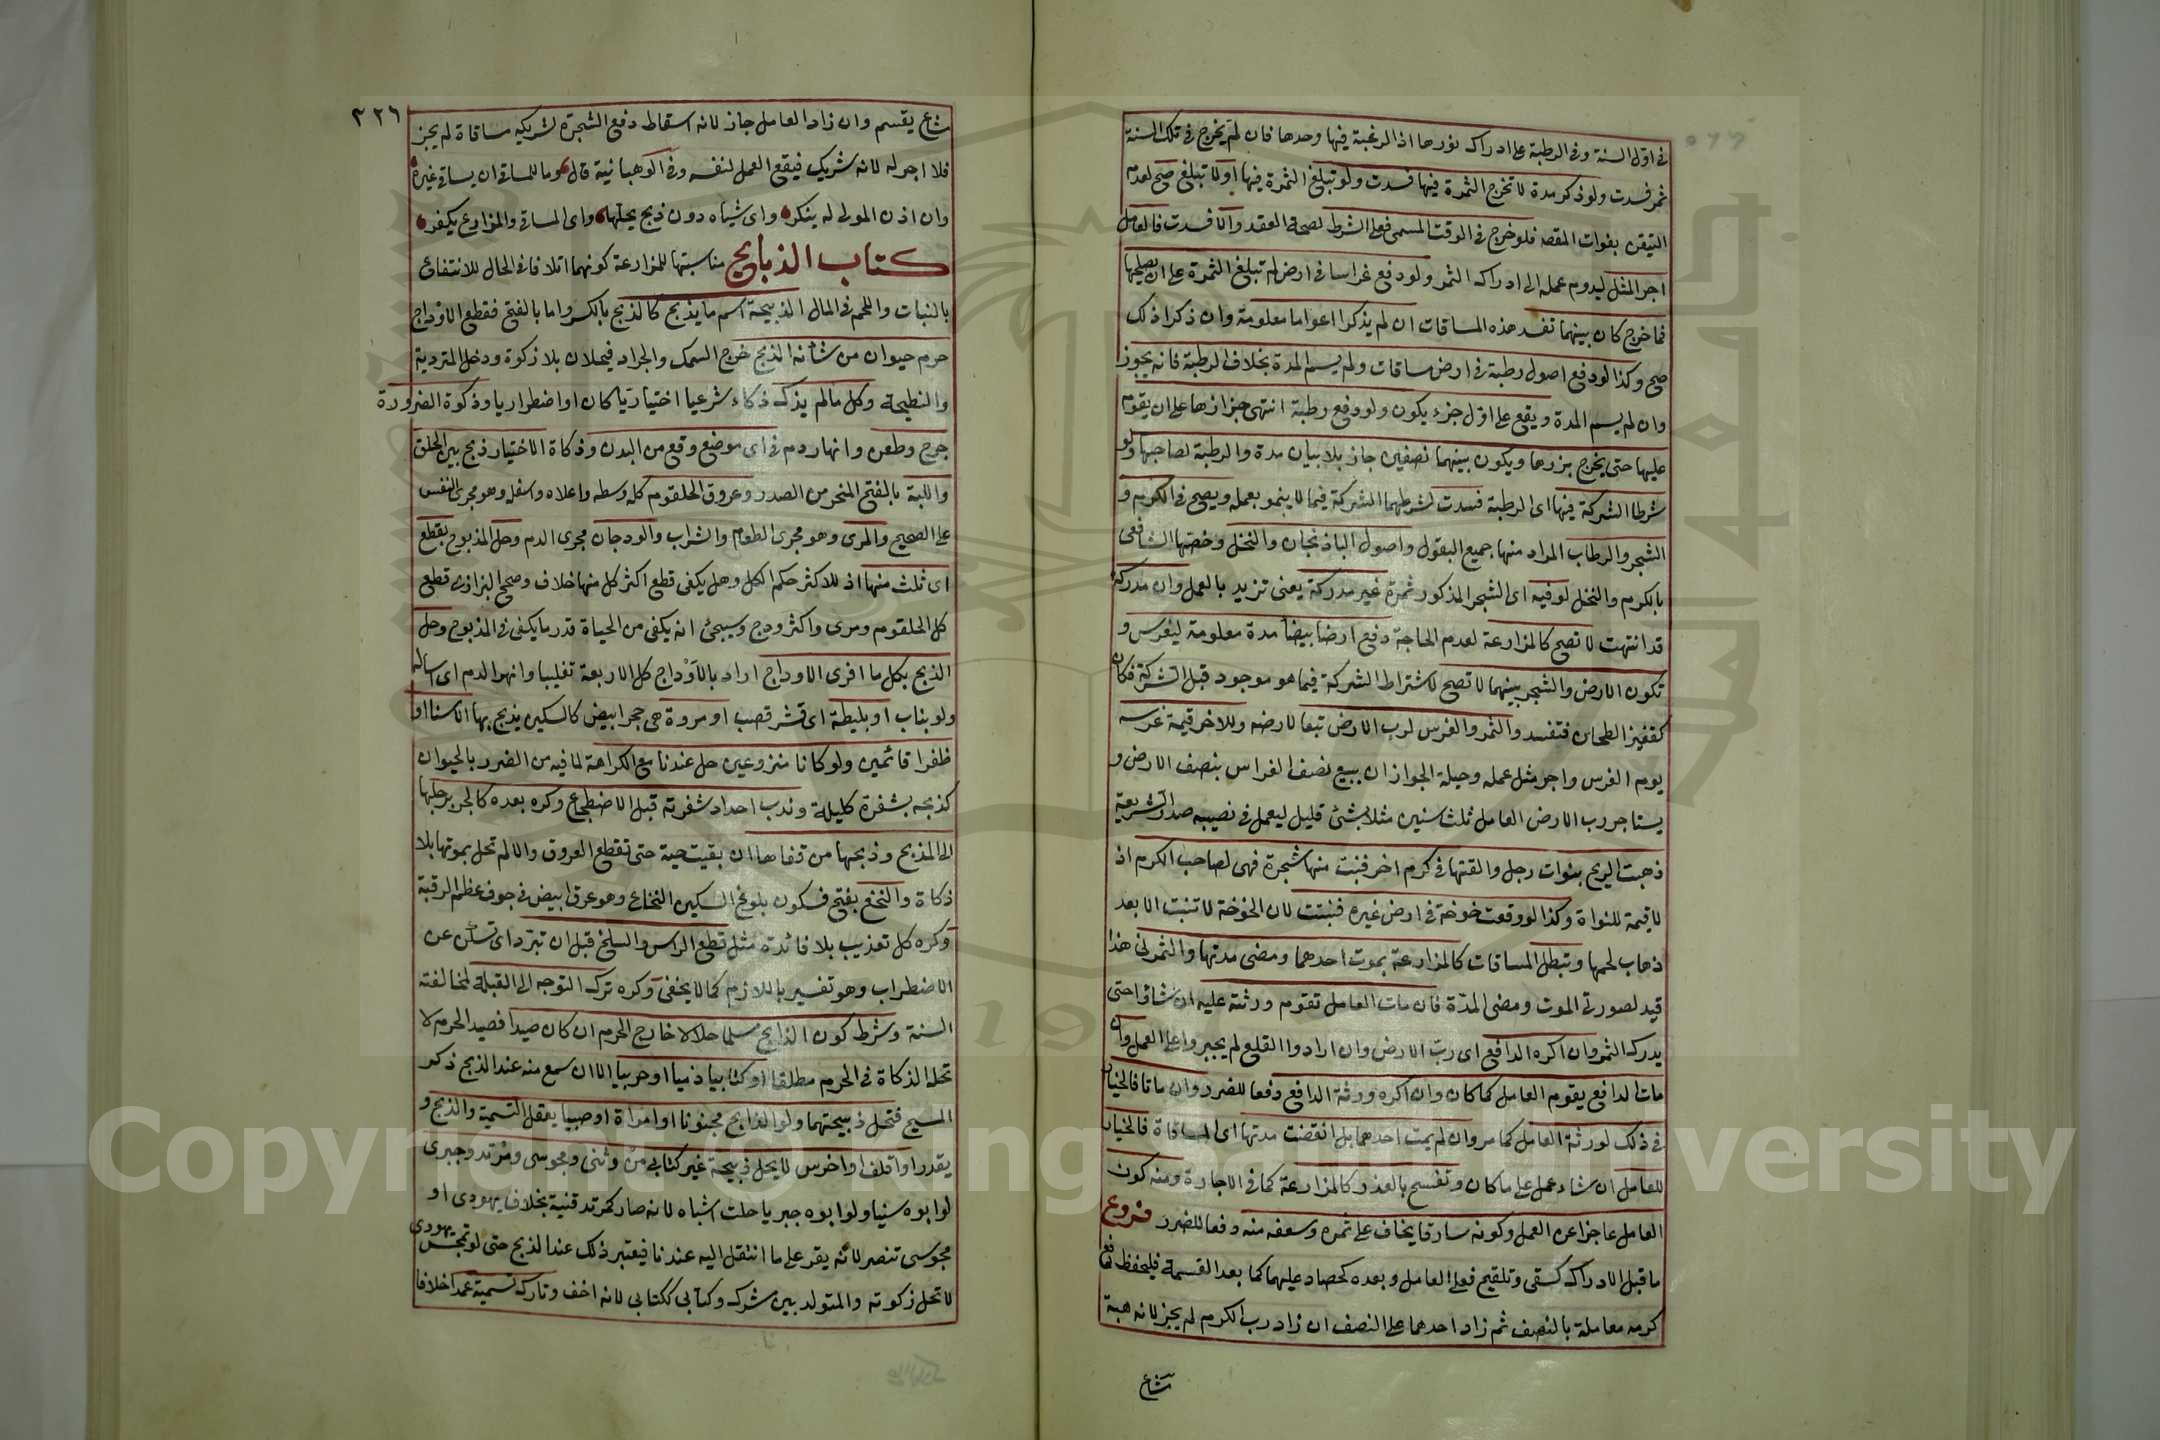 في اول السنة وفي الرطبة على ادراك بزرها اذ الرغبة فيها وحدها فان لم يخرج في تلك السنة
ثمر فسدت ولو ذكر مدة لا تخرج الثمرة فيها فسدت ولو تبلغ الثمرة فيها اولا تبلغ صح لعدم
التيقن بفوات المقصد فلو خرج في الوقت المسمى فعلى الشرط لصحة العقد والا فسدت فللعامل
اجر المثل ليدوم عمله الى ادراك الثمر ولو دفع غراسا في ارض لم تبلغ الثمرة على ان يصلحها
فما خرج كان بينهما تفسد هذه المساقات ان لم يذكرا اعواما معلومة وان ذكرا ذلك
صح وكذا لو دفع اصول رطبة في ارض مساقات ولم يسم المدة بخلاف الرطبة فانه يجوز
وان لم يسم المدة ويقع على اول جزء يكون ولو دفع رطبة انتهى جزازها على ان يقوم
عليها حتى يخرج بزرها ويكون بينهما نصفين جاز بلا بيان مدة والرطبة لصاحبها ولو
شرطا الشركة فيها اى الرطبة فسدت لشرطهما الشركة فيما لا ينمو بعمله ويصح في الكرم و
الشجر والرطاب المراد منها جميع البقول واصول الباذنجان والنخل وخصها الشافعى
بالكرم والنخل لو فيه اى الشجر المذكور ثمرة غير مدركة يعنى تزيد بالعمل وان مدركة
قد انتهت لا تصح كالمزارعة لعدم الحاجة دفع ارضا بيضا مدة معلومة ليغرس و
تكون الارض والشجر بينهما لا تصح لاشتراط الشركة فيما هو موجود قبل الشركة فكان
كقفيز الطحان فتفسد والثمر والغرس لرب الارض تبعا لارضه وللاخر قيمة غرسه
يوم الغرس واجر مثل عمله وحيلة الجواز ان يبيع نصف الغراس بنصف الارض و
يستاجر رب الارض العامل ثلث سنين مثلا بشئ قليل ليعمل في نصيبه صدر الشريعة
ذهبت الريح بنوات رجل والقتها في كرم اخر فنبت منها شجرة فهى لصاحب الكرم اذ
لا قيمة للنواة وكذا لو وقعت خوخة في ارض غيره فنبتت لان الخوخة لا تنبت الا بعد
ذهاب لحمها وتبطل المساقات كالمزارعة بموت احدهما ومضى مدتها والثمر نى هذا
قيد لصورتى الموت ومضى المدة فان مات العامل تقوم ورثته عليه ان شاؤا حتى
يدرك الثمر وان اكره الدافع اى رب الارض وان ارادوا القلع لم يجبروا على العمل وان
مات الدافع يقوم العامل كما كان وان اكره ورثة الدافع دفعا للضرر وان ماتا فالخيار
في ذلك لورثة العامل كما مر وان لم يمت احدهما بل انقضت مدتها اى المساقاة فالخيار
للعامل ان شاء عمل على ما كان وتفسخ بالعذر كالمزارعة كما في الاجارة ومنه كون
العامل عاجزا عن العمل وكونه سارقا يخاف على ثمره وسعفه منه دفعا للضرر فروع
ما قبل الادراك كسقى وتلقيح فعلى العامل وبعده كحصاد عليهما كما بعد القسمة فليحفظ دفع
كرمه معاملة بالنصف ثم زاد احدهما على النصف ان زاد رب الكرم لم يجز لانه هبة
مشاع
٣٢٦
مشاع يقسم وان زاد العامل جاز لانه اسقاط دفع الشجرة لشريكه مساقاة لم يجز
فلا اجر له لانه شريك فيقع العمل لنفسه وفى الوهبانية قال وما للمساقى ان يساقى غيره
وان اذن المولى له ينكر واى شياه دون ذبح يحلها واى المساقى والمزارع يكفر
كتاب الذبايح مناسبتها للمزارعة كونهما اتلافا في الحال للانتفاع
بالنبات واللحم في المال الذبيحة اسم ما يذبح كالذبح بالكسر واما بالفتح فقطع الاوداج
حرم حيوان من شأنه الذبح خرج السمك والجراد فيحلان بلا زكوة ودخل المتردية
والنطيحة وكل ما لم يذك ذكاء شرعيا اختياريا كان او اضطراريا وذكوة الضرورة
جرح وطعن وانهار دم في اى موضع وقع من البدن وذكاة الاختيار ذبح بين الحلق
واللبة بالفتح المنحر من الصدر وعروق الحلقوم كله وسطه واعلاه واسفله وهو مجرى النفس
على الصحيح والمرى وهو مجرى الطعام والشراب والودجان مجرى الدم وحل المذبوح بقطع
اى ثلث منها اذ للاكثر حكم الكل وهل يكفى قطع اكثر كل منها خلاف وصحح البزازى قطع
كل الحلقوم ومرى واكثر ودج وسيجئ انه يكفى من الحياة قدر ما يكفى في المذبوح وحل
الذبح بكل ما افرى الاوداج اراد بالاوداج كل الاربعة تغليبا وانهر الدم اى اساله
ولو بناب او بليطة اى قشر قصب او مروة هى حجر ابيض كالسكين يذبح بها الا سنا او
ظفرا قائمين ولو كانا منزوعين حل عندنا مع الكراهة لما فيه من الضرر بالحيوان
كذبحه بشفرة كليلة وندب احداد شفرته قبل الاضطجاع وكره بعده كالجر برجلها
الى المذبح وذبحها من قفاها ان بقيت حية حتى تقطع العروق والا لم تحل بموتها بلا
ذكاة والنخع بفتح فسكون بلوغ السكين النخاع وهو عرق ابيض في جوف عظم الرقبة
وكره كل تعذيب بلا فائدة مثل قطع الراس والسلخ قبل ان تبرد اى تسكن عن
الاضطراب وهو تفسير باللازم كما لا يخفى وكره ترك التوجه الى القبلة لمخالفته
السنة وشرط كون الذابح مسلما حلالا خارج الحرم ان كان صيدا فصيد الحرم لا
تحله الذكاة في الحرم مطلقا او كتابيا ذميا او حربيا الا ان سمع منه عند الذبح ذكر
المسيح فتحل ذبيحتهما ولو الذابح مجنونا او امراة او صبيا يعقل التسمية والذبح و
يقدر او اقلف او اخرس لا يحل ذبيحة غير كتابى من وثنى ومجوسى ومرتد وجبرى
لو ابوه سنيا ولو ابوه جبريا حلت اشباه لانه صار كمرتد قنية بخلاف يهودى او
مجوسى تنصر لانه يقر على ما انتقل اليه عندنا فيعتبر ذلك عند الذبح حتى لو تمجس يهودى
لا تحل زكوته والمتولد بين مشرك وكتابى ككتابى لانه اخف وتارك تسمية عمدا خلافا
Copyright © King Saud University